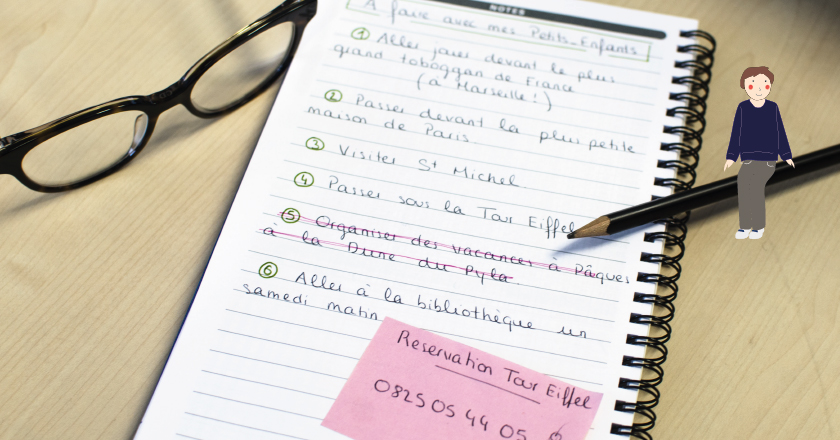 NOTES
A faire avec mes Petits-Enfants
① Aller jouer devant le plus
grand toboggan de France
(à Marseille!)
② Passer devant la plus petite
maison de Paris.
③ Visiter St Michel.
④ Passer sous la Tour Eiffel
⑤ Organiser des vacances à Pâques
à la Dune du Pyla.
⑥ Aller à la bibliothèque un
samedi matin
Reservation Tour Eiffel
0825 05 44 05